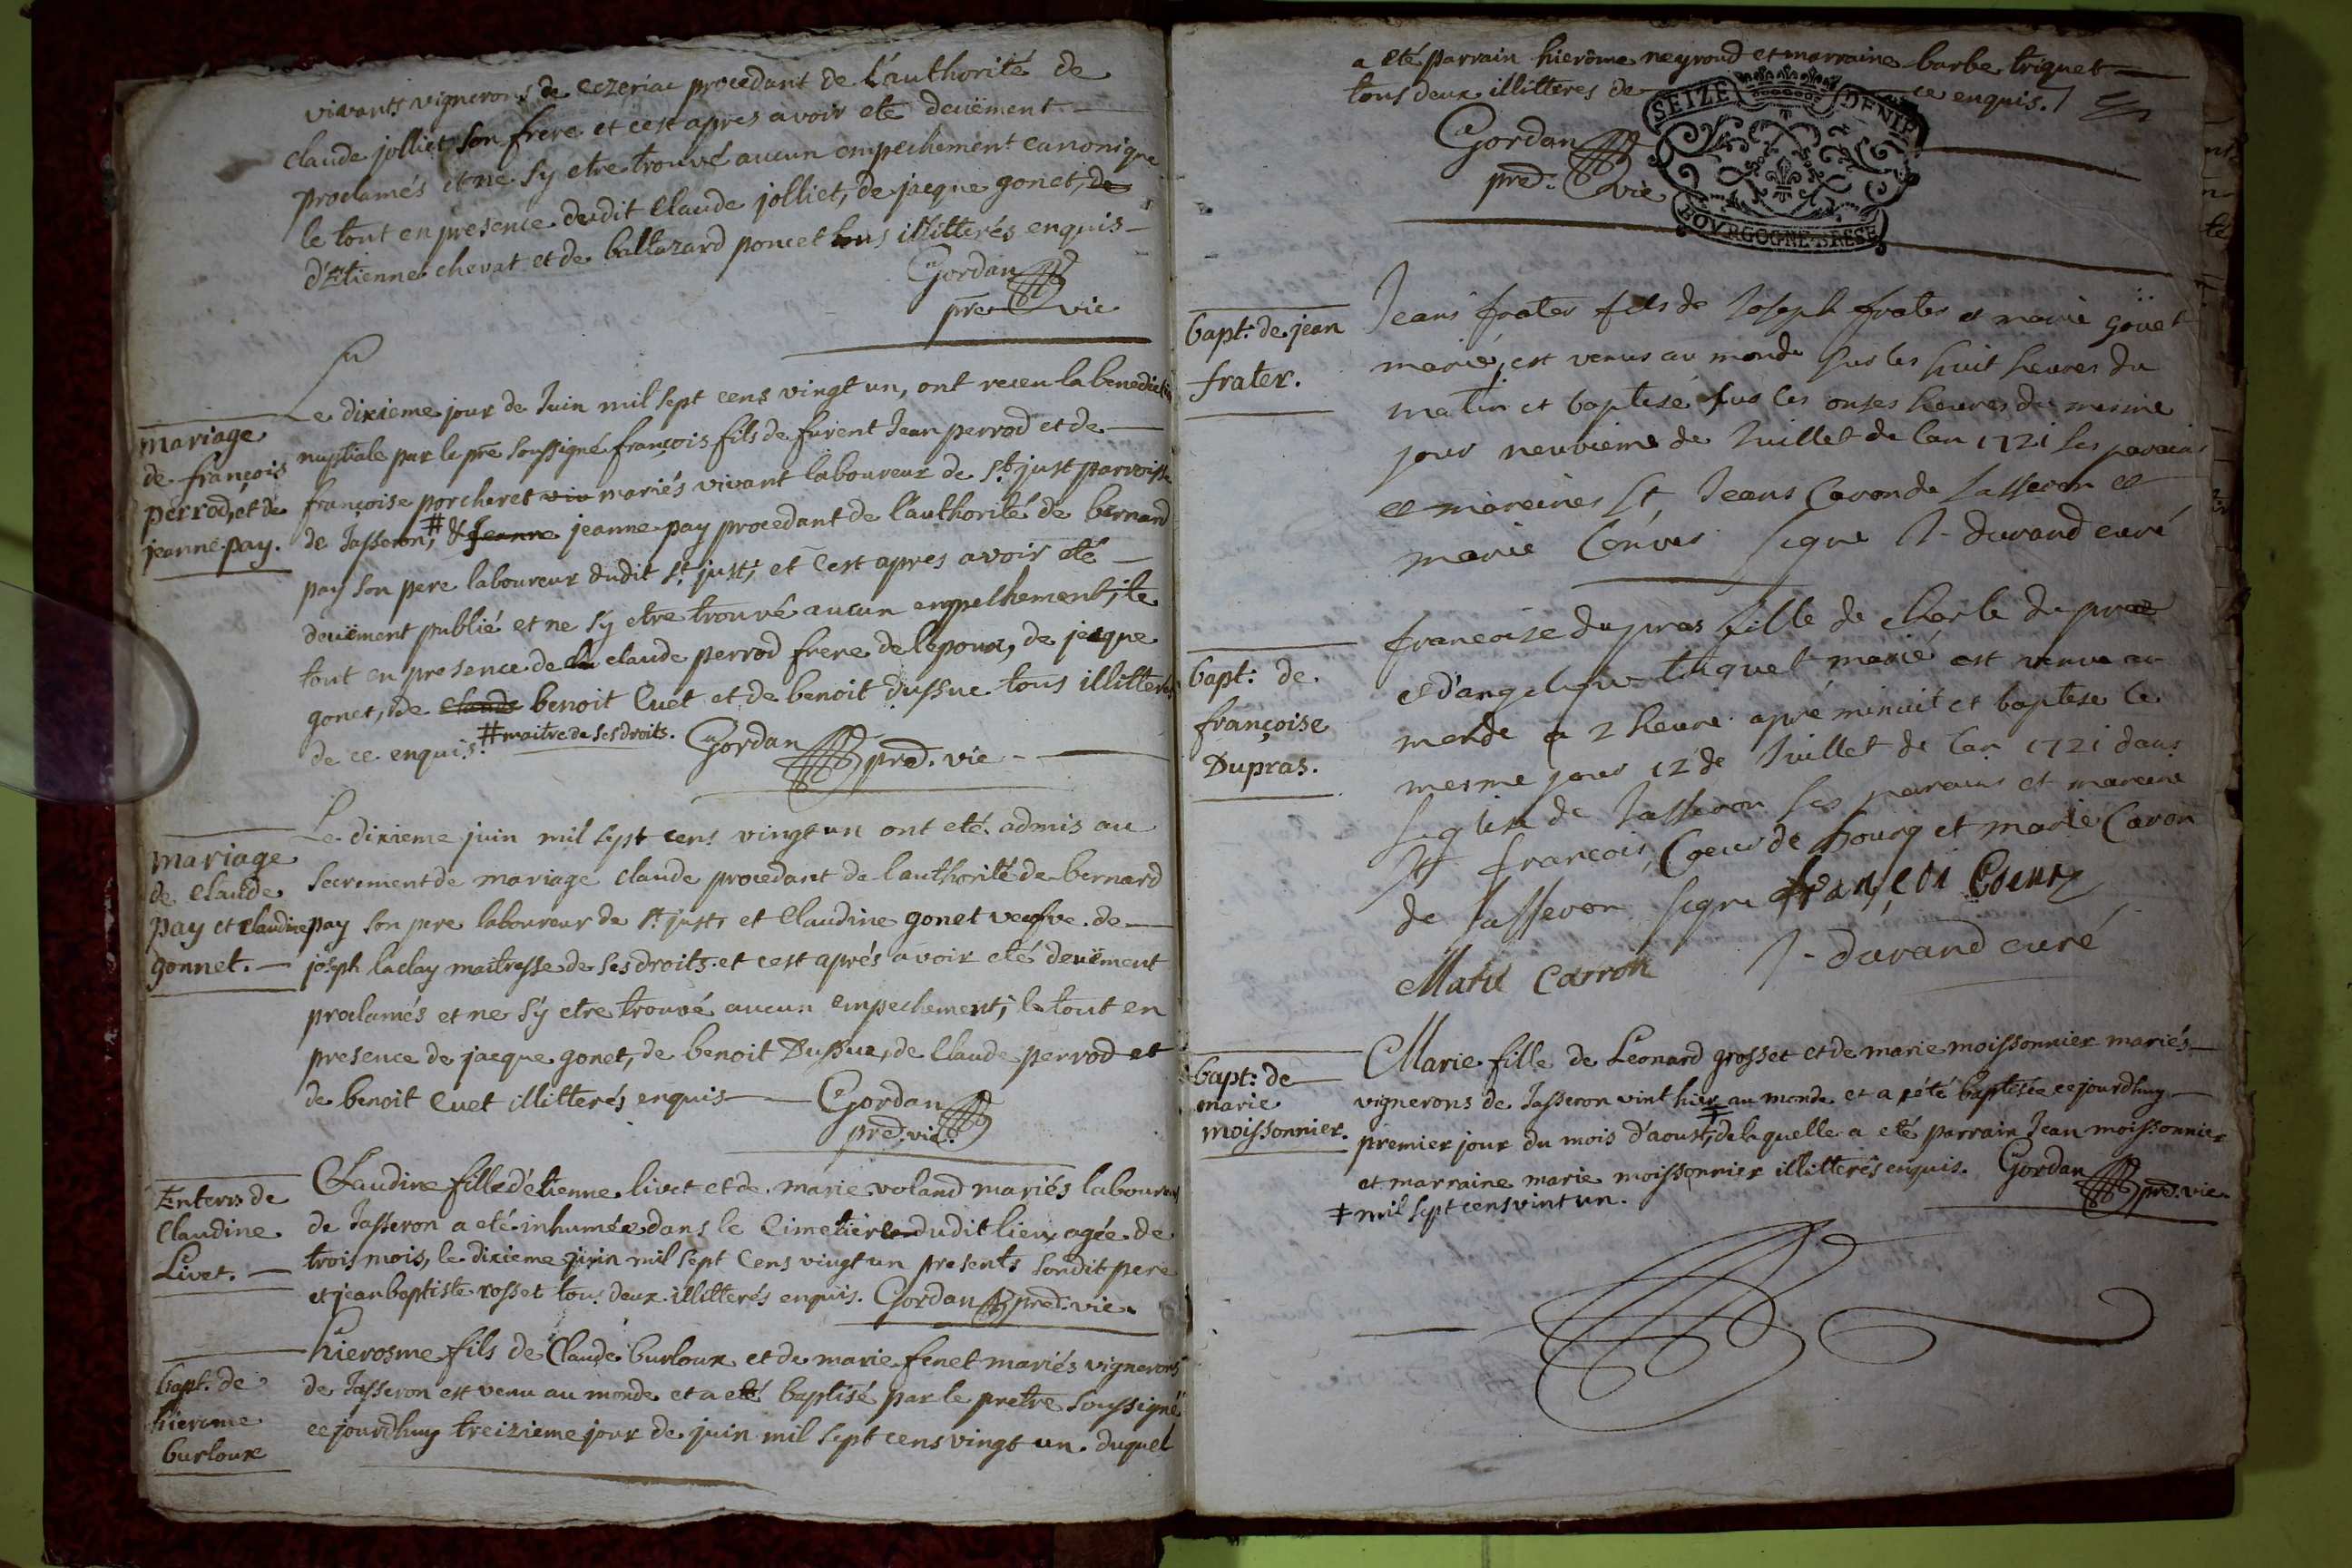 vivants vignerons de cezeriac procedant de l'authorité de
claude jolliet son frere et c'est apres avoir eté deuëment
proclamés et ne s'y etre trouvé aucun empechement canonique
le tout en presence dudit claude jolliet, de jacque gonet, de
d'Etienne chevat et de baltazard poncet tous illitterés enquis
Gordan
pre vic
Le dixieme jour de Juin mil sept cens vingt un, ont receu la benediction
mariage
de françois
perrod, et de
jeanne pay.
nuptiale par le pre soussigné françois fils de furent Jean perrod et de
françoise porcheret viv mariés vivant laboureur de st just parroisse
de Jasseron,# & Jeanne jeanne pay procedant de l'authorité de bernard
pay son pere laboureur dudit st just; et c'est apres avoir eté
deuëment publié et ne s'y etre trouvé aucun empechement; le
tout en presence de claude perrod frere de l'epoux, de jacque
gonet, de claude benoit Cuet et de benoit dussuc tous illitterés
de ce enquis. #maitre de ses droits. Gordan pred. vic
Le dixieme juin mil sept cens vingt un ont eté admis au
mariage
de claude
pay et claudine
gonnet.
secrement de mariage claude procedant de l'authorité de bernard
pay son pere laboureur de st just et claudine gonet veufve de
joseph laclay maitresse de ses droits et c'est aprés avoir eté deuëment
proclamés et ne s'y etre trouvé aucun empechement; le tout en
presence de jacque gonet, de benoit Dussuc, de claude perrod et
de benoit Cuet illitterés enquis Gordan
pred. vic.
Enterr. de
Claudine
Livet.
Claudine fille d'etienne livet et de marie voland mariés laboureurs
de Jasseron a eté inhumée dans le Cimetiere dudit lieu agée de
trois mois, le dixieme juin mil sept cens vingt un presents sondit pere
et jean baptiste rosset tous deux illitterés enquis. Gordan pred. vic.
bapt. de
hierome
burloux
hierosme fils de Claude burloux et de marie fenet mariés vignerons
de Jasseron est venu au monde et a eté baptisé par le pretre soussigné
ce jourdhuy treizieme jour de juin mil sept cens vingt un. duquel
a eté parrain hierôme neyroud et marraine barbe triquet
tous deux illitteres de ce enquis.
SEIZE DENIE
BOVRGOGNE-BRESE
Gordan
pred. vic
bapt. de jean
frater.
Jean frater fils de Joseph frater et marie gonet
marié, est venus au monde sur les huit heures du
matin et baptisé sur les onses heures du mesme
jour neuvieme de Juillet de lan 1721 ses parains
et mareines st, Jean Caron de Jasseron et
marie signe J. durand curé
bapt. de
françoise
Dupras.
francoise dupras fille de charle dupras
et d'angelique triquet marié est venue au
monde a 2 heure apré minuit et baptise le
mesme jour 12 de Juillet de lan 1721 dans
leglise de Jasseron ses parains et mareine
st francois Coeur de bourg et marie Caron
de Jasseron signe françoi Coeur
Marie Carron J. durand curé
bapt. de
marie
moissonnier.
Marie fille de Leonard grosset et de marie moissonnier mariés
vignerons de Jasseron vint hier au monde et a eté baptisée ce jourdhuy
premier jour du mois d'aoust,‡ de laquelle a eté parrain Jean moissonnier
et marraine marie moissonnier illitterés enquis. Gordan pred. vic.
‡ mil sept cens vint un.